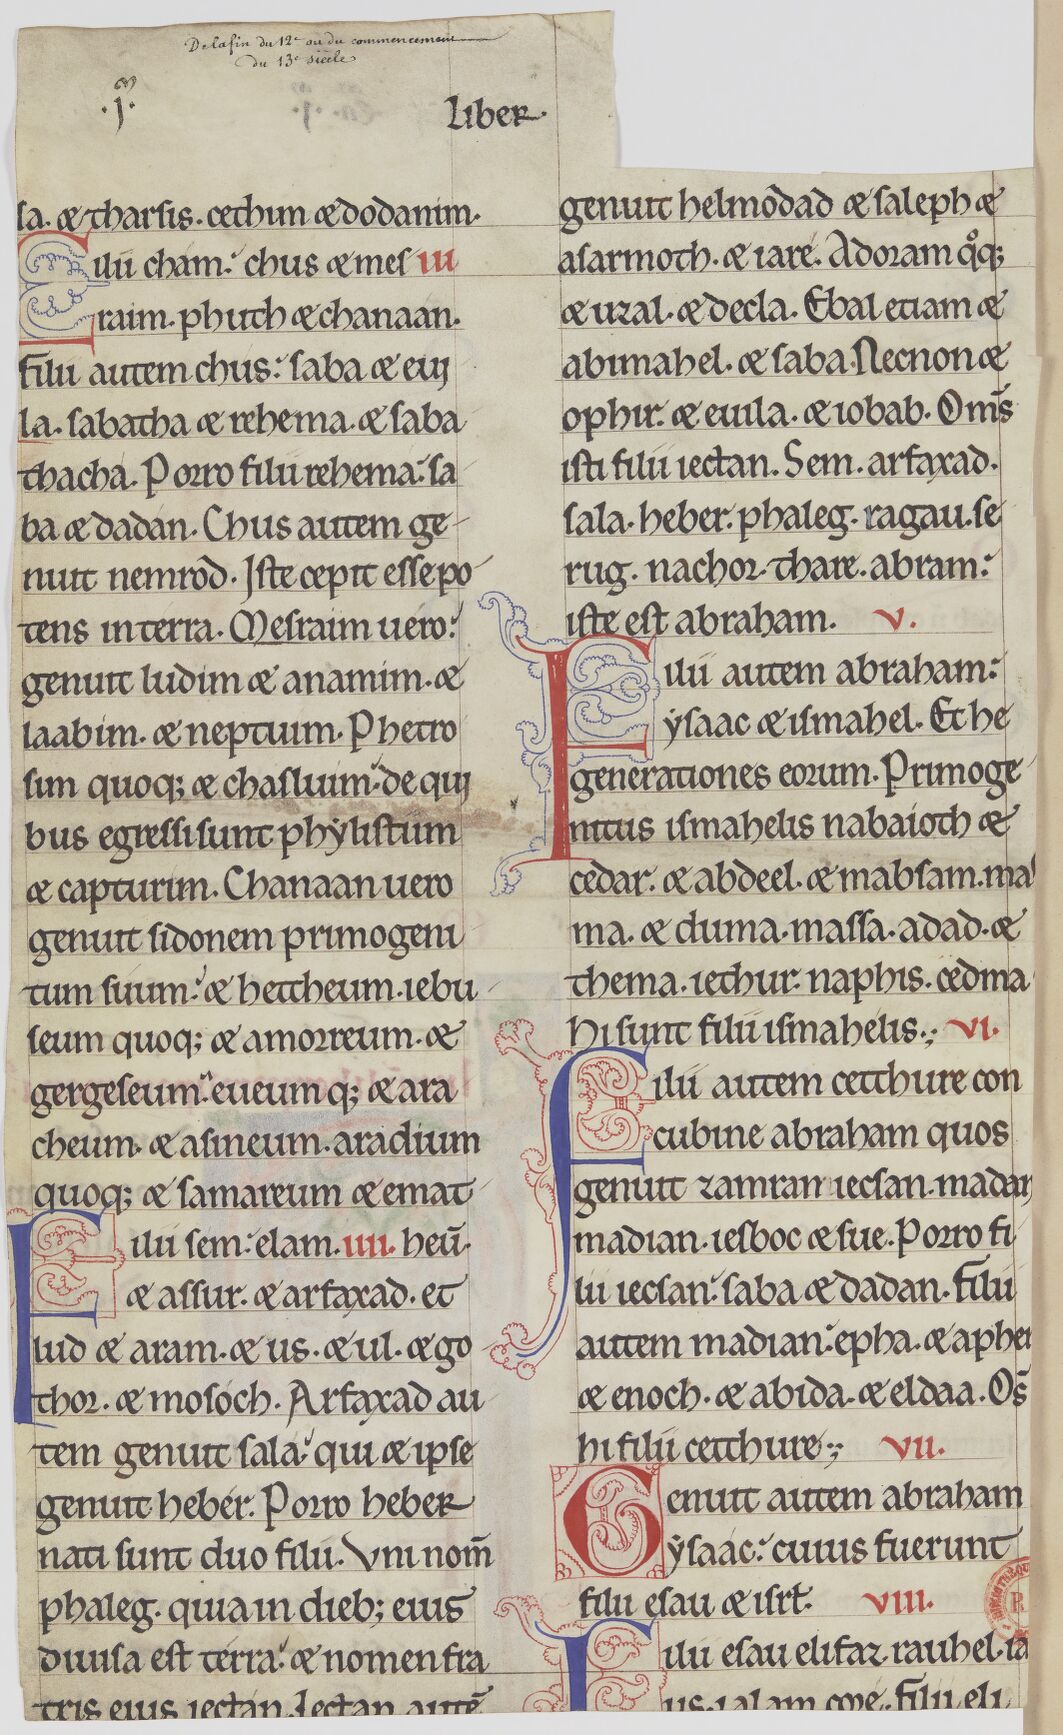 De la fin du 12e ou du commencement
du 13e siècle
.j.
Liber.
sa. & tharsis. cethim & dodanim.
Filii cham: chus & mes III
raim. phuth & chanaan.
filii autem chus: saba & eui
la. sabatha & rehema. & saba
thacha. Porro filii rehema: sa
ba & dadan. Chus autem ge
nuit nemrod. Iste cepit esse po
tens in terra. Mesraim uero:
genuit ludim & anamim. &
laabim. & neptuim. Phetro
sim quoq; & chasluim: de qui
bus egressi sunt phylistiim
& capturim. Chanaan uero
genuit sidonem primogeni
tum suum: & hettheum. iebu
seum quoq; & amorreum. &
gergeseum: eueumq; & ara
cheum. & asineum. aradium
quoq; & samareum & emat
Filii sem: elam. IIII. heu.
& assur. & arfaxad. et
lud & aram. & us. & ul. & go
thor. & mosoch. Arfaxad au
tem genuit sala: qui & ipse
genuit heber. Porro heber
nati sunt duo filii. Vni nom̄
phaleg. quia in dieb; eius
diuisa est terra: & nomen fra
tris eius iectan. Iectan autē
genuit helmodad & saleph &
asarmoth. & iare. Adoram qoq;
& uzal. & decla. Ebal etiam &
abimahel. & saba. Necnon &
ophir. & euila. & iobab. Om̄s
isti filii iectan. Sem. arfaxad.
sala. heber. phaleg. ragau. se
rug. nachor. thare. abram:
iste est abraham. V.
Filii autem abraham:
ysaac & ismahel. Et he
generationes eorum. Primoge
nitus ismahelis nabaioth &
cedar. & abdeel. & mabsam. mas
ma. & duma. massa. adad. &
thema. iethur. naphis. cedma
hi sunt filii ismahelis. VI.
Filii autem cetthure con
cubine abraham quos
genuit zamran iecsan. madan
madian. iesboc & sue. Porro fi
lii iecsan: saba & dadan. Filii
autem madian: epha. & apher
& enoch. & abida. & eldaa. Os̄
hi filii cetthure; VII.
Genuit autem abraham
ysaac: cuius fuerunt
filii esau & isrł. VIII.
Filii esau elifaz. rauhel. ia
us. ialam core. Filii eli